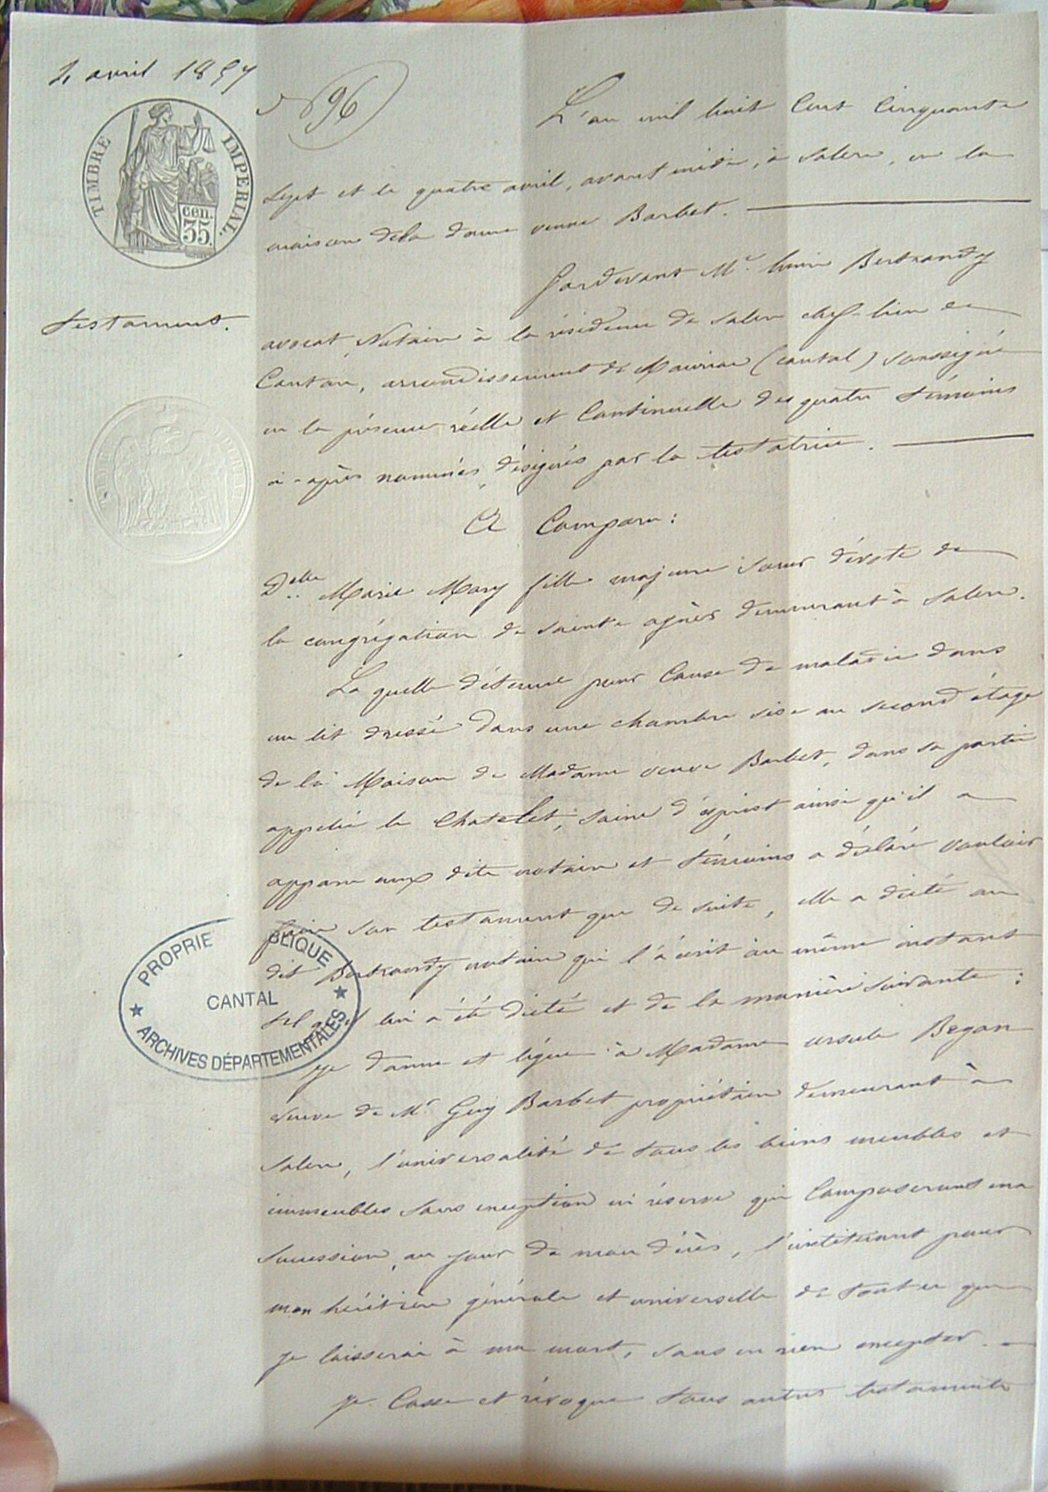 4 avril 1857
N° 96
TIMBRE IMPERIAL.
cen. 35
testament.
L'an mil huit Cent Cinquante
sept et le quatre avril, avant midi, à Salers, en la
maison de la dame veuve Barbet.
Pardevant Mr. Bertrandy
avocat, Notaire à la résidence de Salers chef-lieu de
Canton, arrondissement de Mauriac (Cantal) soussigné
en la présence réelle et Continuelle des quatre témoins
ci-après nommés, désignés par la testatrice.
A Comparu:
Delle Marie Mary fille majeure soeur dévote de
la congrégation de Sainte agnès demeurant à Salers.
La quelle détenue pour Cause de maladie dans
un lit dressé dans une chambre sise au second étage
de la Maison de Madame veuve Barbet, dans sa partie
appelée le Chatelet; saine d'esprit ainsi qu'il a
apparu aux dits notaire et témoins a déclaré vouloir
faire son testament que de suite, elle a dicté au
dit Bertrandy notaire qui l'a écrit au même instant
tel qu'il lui a été dicté et de la manière suivante:
je donne et lègue à Madame ursule Began
veuve de Mr Guy Barbet propriétaire demeurant à
Salers, l'universalité de tous les biens meubles et
immeubles sans exception ni réserve qui Composerons ma
Succession, au jour de mon décès, l'instituant pour
mon héritière générale et universelle de tout ce que
je laisserai à ma mort, sans en rien excepter.
je Casse et révoque tous autres testaments
PROPRIE BLIQUE
CANTAL
ARCHIVES DÉPARTEMENTALES